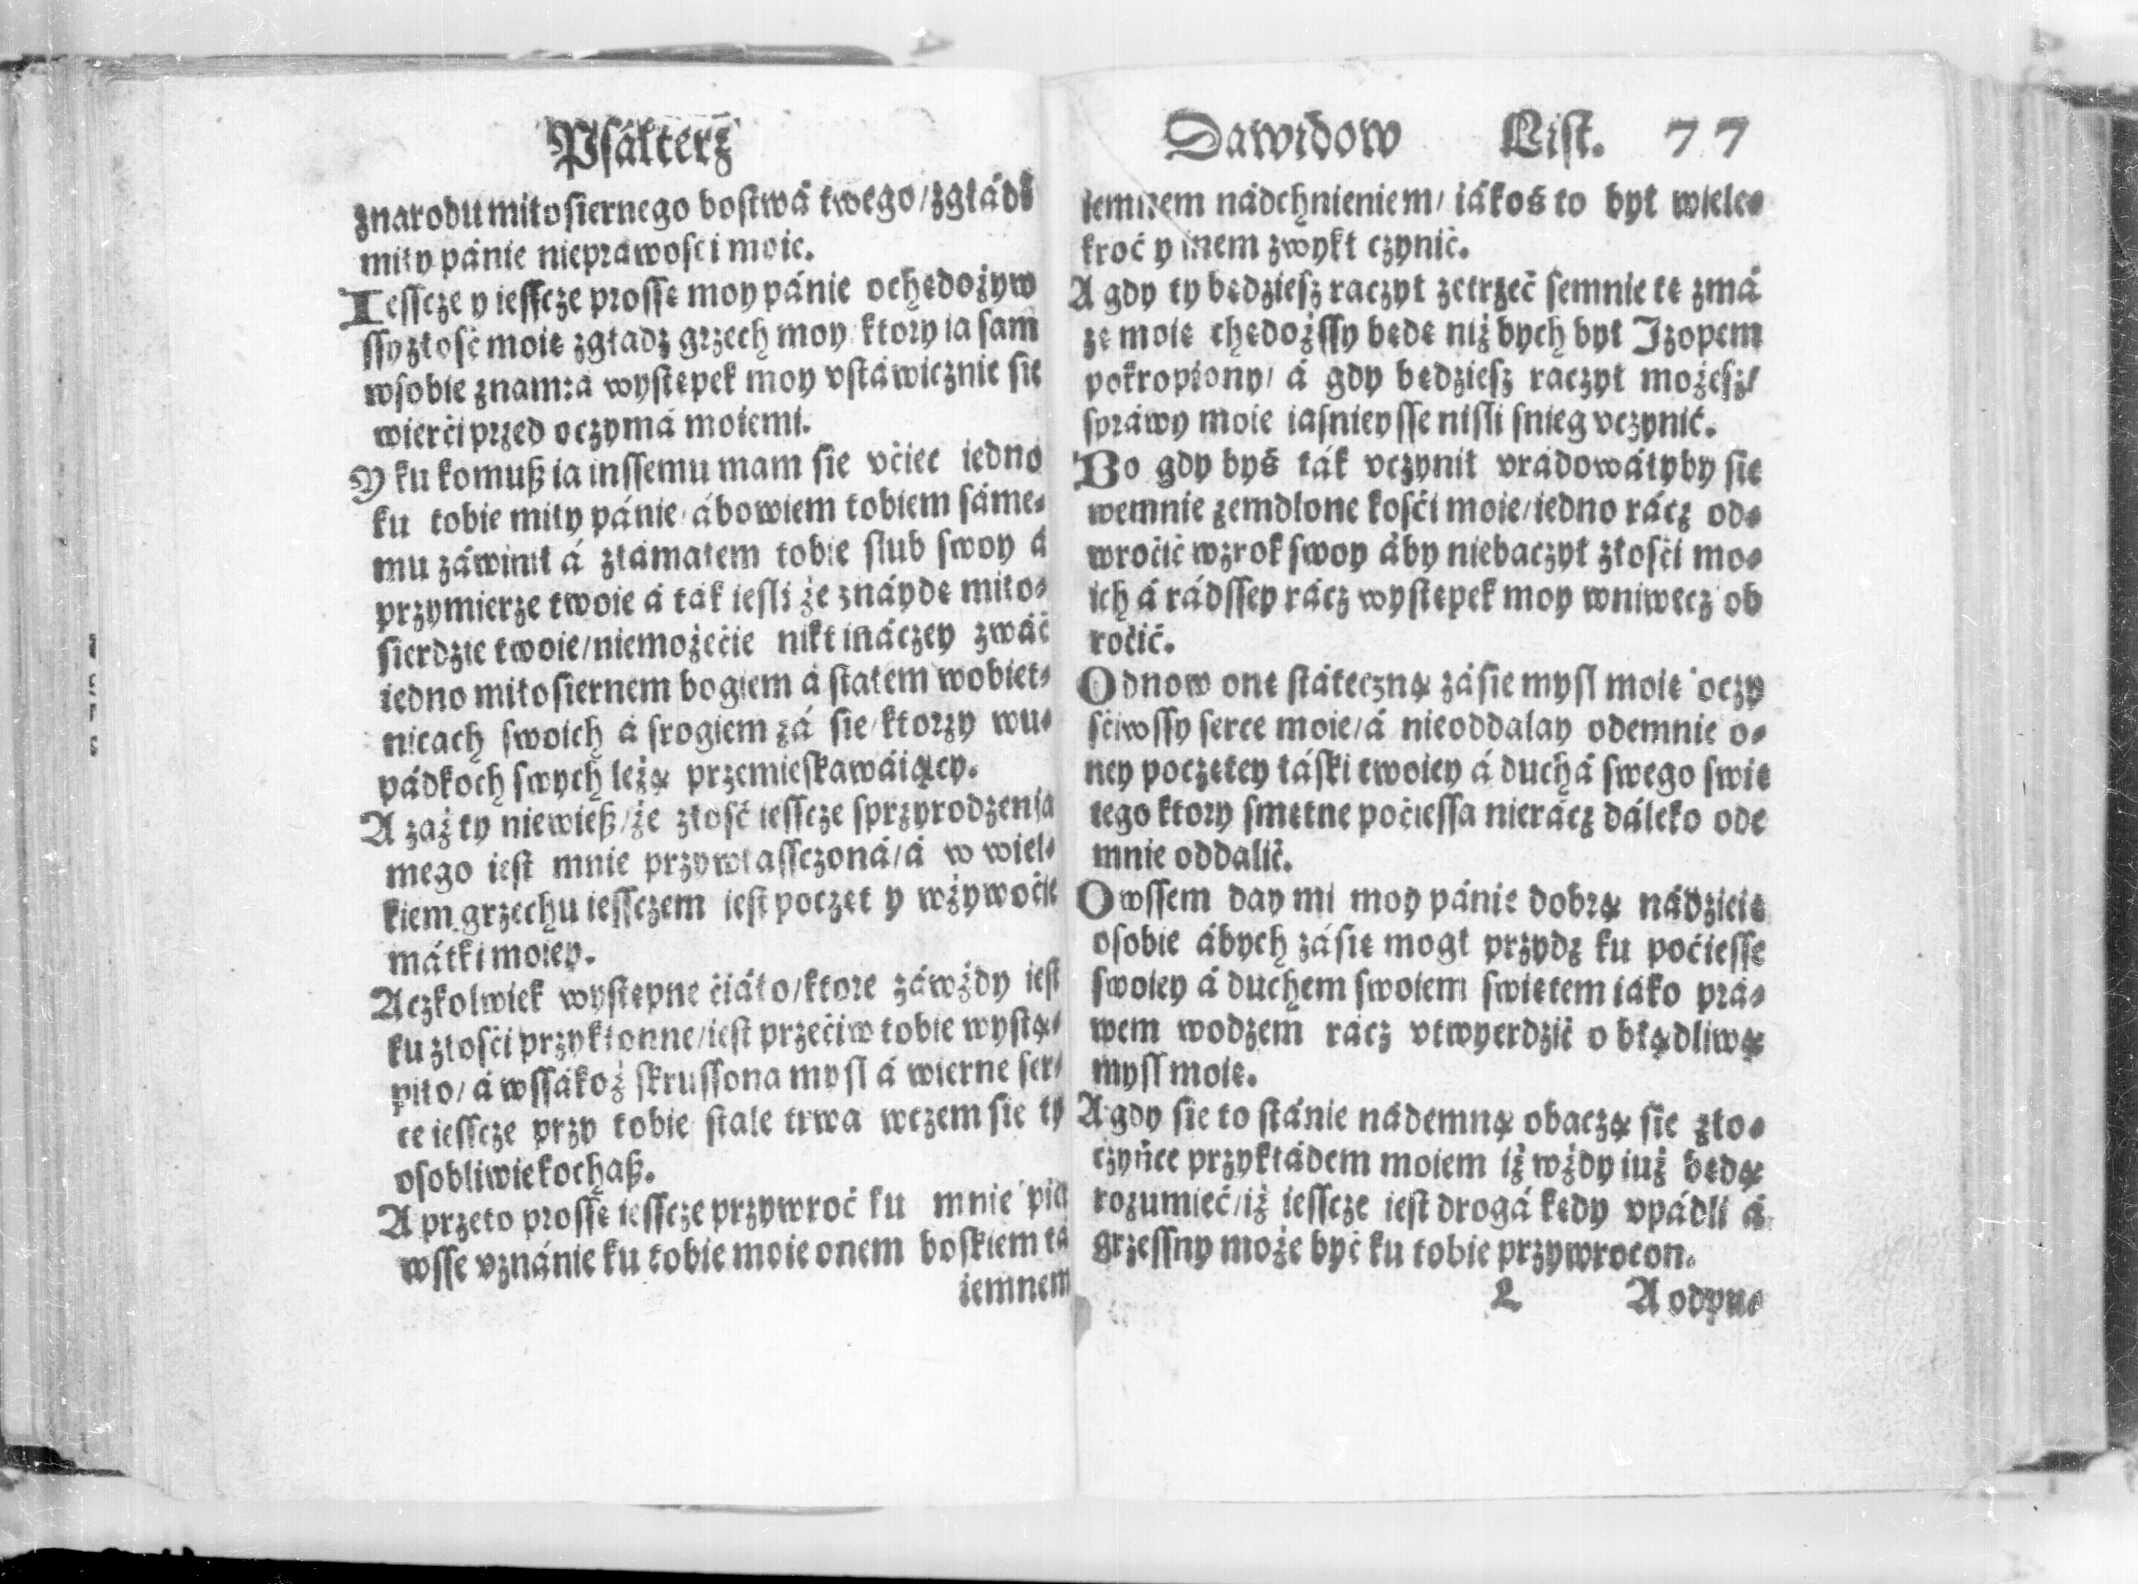 Psálterz
znarodu miłosiernego bostwá twego/zgłádź
miły pánie niepráwosci moie.
Iessczе y iessczе prosſę moy pánie ochędożyw
ssy złość moię zgładz grzech moy ktory ia sam
wsobie znam:á występek moy vstáwicznie się
wierći przed oczymá moiemi.
Y ku komuß ia inssemu mam sie vćiec iedno
ku tobie miły pánie/ábowiem tobiem sáme⸗
mu záwinił á złamałem tobie slub swoy á
przymierze twoie á ták iesli że znáydę miło⸗
sierdzie twoie/niemożećie nikt ináczey zwáć
iedno miłosiernem bogiem á stałem wobiet⸗
nicach swoich á srogiem zá sie/ktorzy wu⸗
pádkoch swych leżą przemieskawáiący.
A zaż ty niewieß/że złość iesscze sprzyrodzenia
mego iest mnie przywłassczoná/á w wiel⸗
kiem grzechu iessczem iest począt y wżywoćie
mátki moiey.
Aczkolwiek występne ćiáło/ktore záwżdy iest
ku złosći przykłonne/iest przećiw tobie wystą⸗
piło/á wssákoż skrussona mysl á wierne ser⸗
ce iesscze przy tobie stale trwa wczem sie ty
osobliwie kochaß.
A przeto prossę iesscze przywroć ku mnie pir
wsse vznánie ku tobie moie onem boskiem tá
iemnem
Dawidow List. 77
iemnem nádchnieniem/iákoś to był wiele⸗
kroć y inem zwykł czynić.
A gdy ty będziesz raczył zetrzeć semnie tę zmá
zę moię chędożssy będę niż bych był Izopem
pokropiony/á gdy będziesz raczył możesz/
spráwy moie iasnieysse nisli snieg vczynić.
Bo gdy byś ták vczynił vrádowáłyby się
wemnie zemdlone kośći moie/iedno rácz od⸗
wroćić wzrok swoy áby niebaczył złosći mo⸗
ich á rádssey rácz występek moy wniwecz ob
roćić.
Odnow onę státeczną zásie mysl moię oczy
śćiwssy serce moie/á nieoddalay odemnie o⸗
ney poczętey łáski twoiey á duchá swego swię
tego ktory smętne poćiessa nierácz dáleko ode
mnie oddalić.
Owssem day mi moy pánie dobrą nádzieię
osobie ábych zásię mogł przydz ku poćiesse
swoiey á duchem swoiem swiętem iáko prá⸗
wem wodzem rácz vtwyerdzić o błądliwą
mysl moię.
A gdy sie to stánie nádemną obaczą sie zło⸗
czyńce przykłádem moiem iż wżdy iuż będą
rozumieć/iż iesscze iest drogá kędy vpádli á
grzessny może być ku tobie przywrocon.
L A odyn⸗